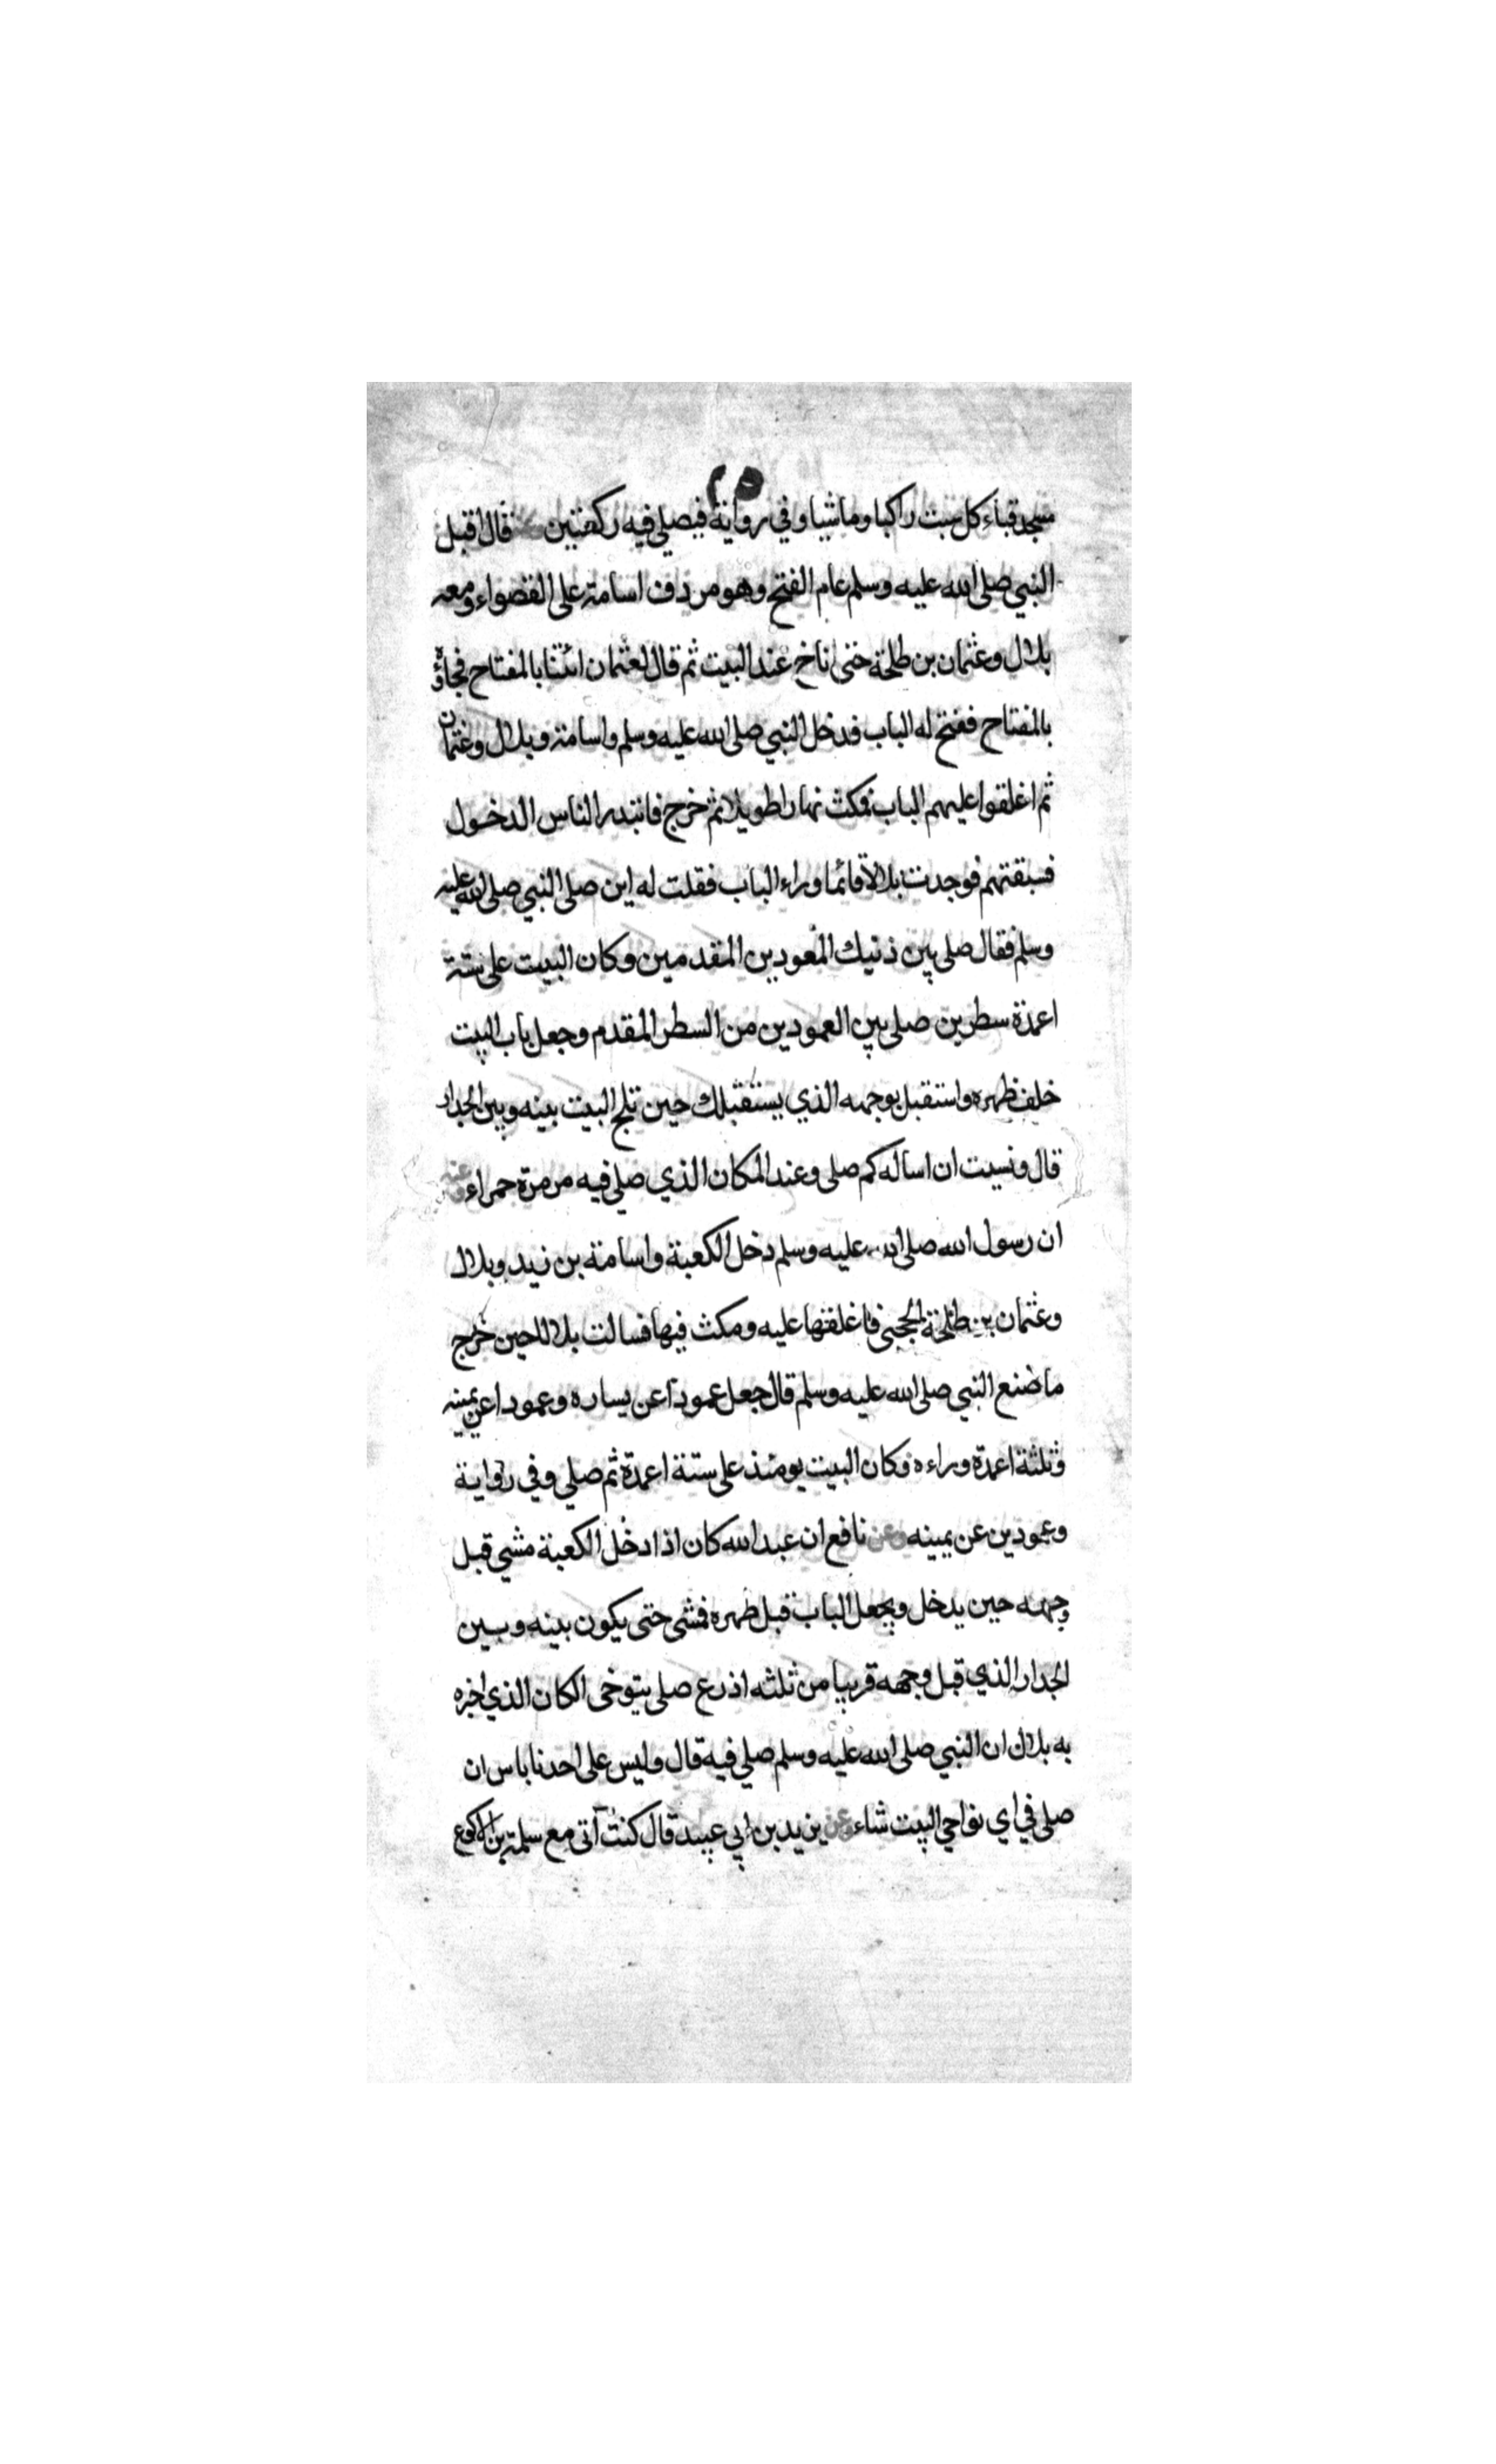 ٢٥
مسجد قباء كل سبت راكبا وماشيا وفي رواية فيصلي فيه ركعتين قال اقبل
النبي صلى الله عليه وسلم عام الفتح وهو مردف اسامة على القصواء ومعه
بلال وعثمان بن طلحة حتى اناخ عند البيت ثم قال لعثمان ائتنا بالمفتاح فجاؤه
بالمفتاح ففتح له الباب فدخل النبي صلى الله عليه وسلم واسامة وبلال وعثمان
ثم اغلقوا عليهم الباب فمكث نهارا طويلا ثم خرج فابتدر الناس الدخول
فسبقتهم فوجدت بلالا قائما وراء الباب فقلت له اين صلى النبي صلى الله عليه
وسلم فقال صلى بين ذنيك المعودين المقدمين وكان البيت على ستة
اعمدة سطرين صلى بين العمودين من السطر المقدم وجعل باب البيت
خلف ظهره واستقبل بوجهه الذي يستقبلك حين تلج البيت بينه وبين الجدار
قال ونسيت ان اساله كم صلى وعند المكان الذي صلى فيه مرمرة حمراء وعنه
ان رسول الله صلى الله عليه وسلم دخل الكعبة واسامة بن زيد وبلال
وعثمان بن طلحة الحجبي فاغلقها عليه ومكث فيها فسالت بلالا حين خرج
ما صنع النبي صلى الله عليه وسلم قال جعل عمودا عن يساره وعمودا عن يمينه
وثلثة اعمدة وراءه وكان البيت يومئذ على ستة اعمدة ثم صلى وفي رواية
وعمودين عن يمينه وعن نافع ان عبد الله كان اذا دخل الكعبة مشي قبل
وجهه حين يدخل ويجعل الباب قبل ظهره فمشى حتى يكون بينه وبين
الجدار الذي قبل وجهه قريبا من ثلثه اذرع صلى يتوخى المكان الذي اخبره
به بلال ان النبي صلى الله عليه وسلم صلي فيه قال وليس على احدنا باس ان
صلى في اي نواحي البيت شاء وعن يزيد بن ابي عبيد قال كنت آتي مع سلمة بن الاكوع